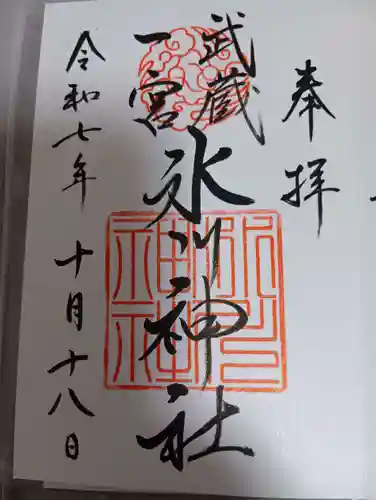 奉拝
武蔵
一宮
氷川神社
令和七年 十月十八日
氷川神社